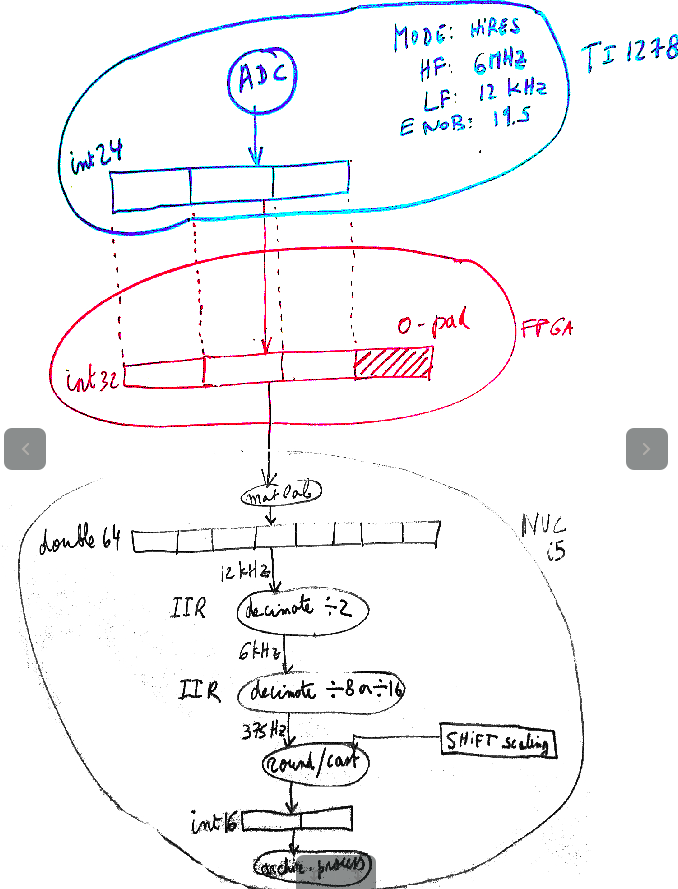 ADC
MODE: HiRES
HF: 6MHz
LF: 12 kHz
ENOB: 19.5
TI 1278
int24
0-pad
FPGA
int32
matlab
double 64
NUC
i5
12kHz
IIR
decimate ÷2
6kHz
IIR
decimate ÷8 or ÷16
375Hz
SHiFT scaling
round/cast
int16